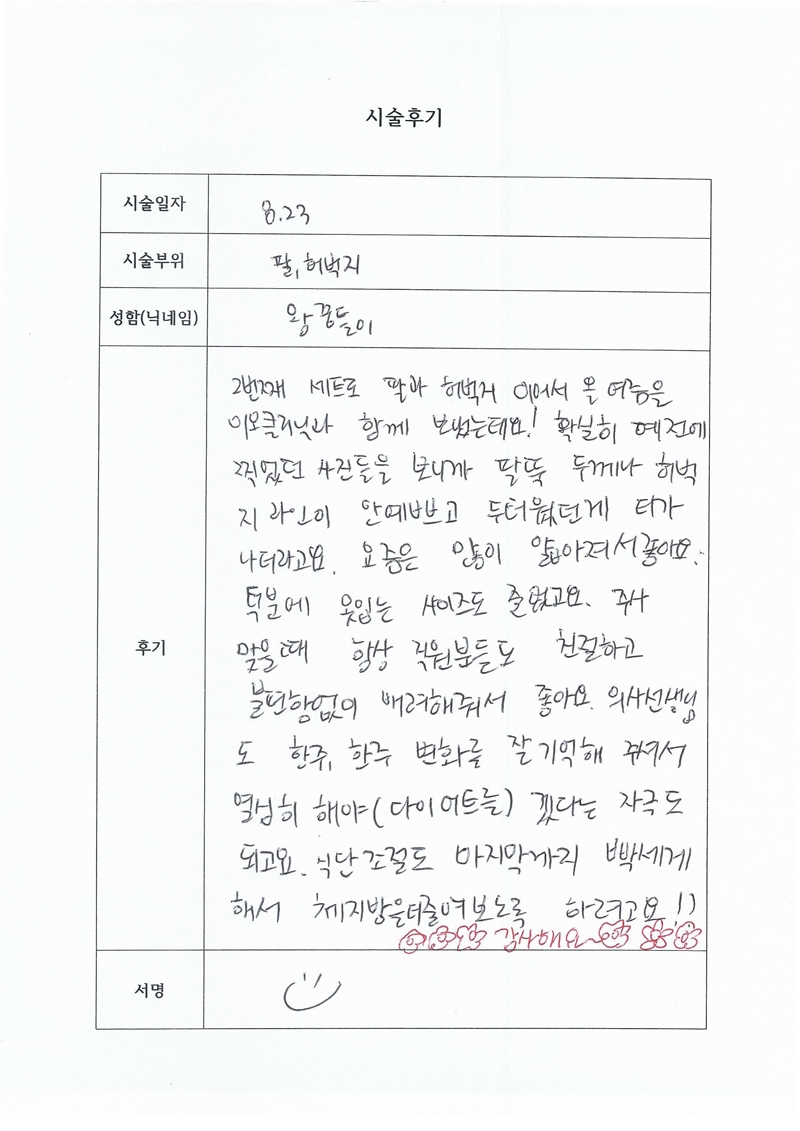 시술후기
시술일자 8.23
시술부위 팔, 허벅지
성함(닉네임) 왕꿈틀이
후기
2번째 세트로 팔과 허벅지 이어서 올 여름을
이오클리닉과 함께 보냈는데요! 확실히 예전에
찍었던 사진들을 보니까 팔뚝 두께나 허벅
지 라인이 안예쁘고 두터웠던게 티가
나더라고요. 요즘은 많이 얇아져서 좋아요.
덕분에 옷입는 사이즈도 줄었고요. 주사
맞을때 항상 직원분들도 친절하고
불편함없이 배려해줘서 좋아요. 의사선생님
도 한주, 한주 변화를 잘 기억해 주셔서
열심히 해야(다이어트를) 겠다는 자극도
되고요. 식단조절도 마지막까지 빡세게
해서 체지방을더줄여보도록 하려고요!)
감사해요~
서명